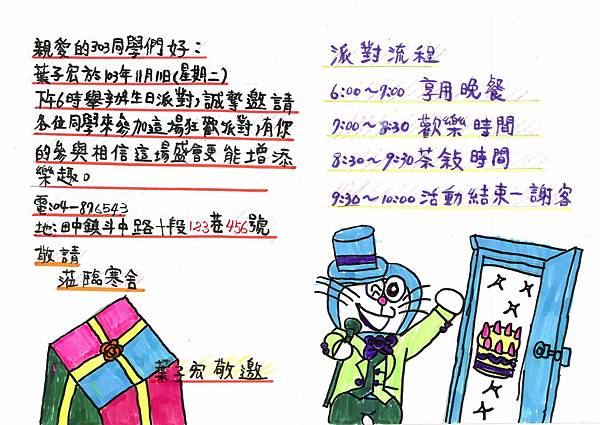 親愛的303同學們好：
葉子宏於103年11月11日(星期二)
下午6時舉辦生日派對，誠摯邀請
各位同學來參加這場狂歡派對，有你
的參與相信這場盛會更能增添
樂趣。
電：04-876543
地：田中鎮斗中路十段123巷456號
敬請
蒞臨寒舍
葉子宏敬邀
派對流程
6:00～7:00 享用晚餐
7:00～8:30 歡樂時間
8:30～9:30 茶敍時間
9:30～10:00 活動結束－謝客